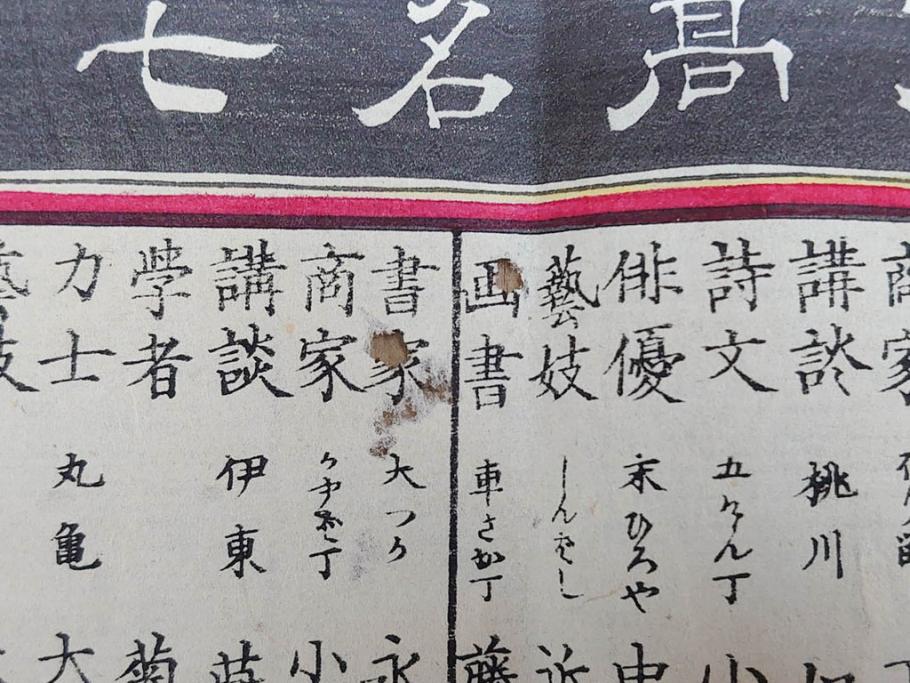 高名七
商家
講談 桃川
詩文 五けん丁
俳優 末ひろや
藝妓 しんばし
画書 車さか丁
書家 大つか 永
商家 小
講談 伊東
学者 菊
力士 丸亀 大